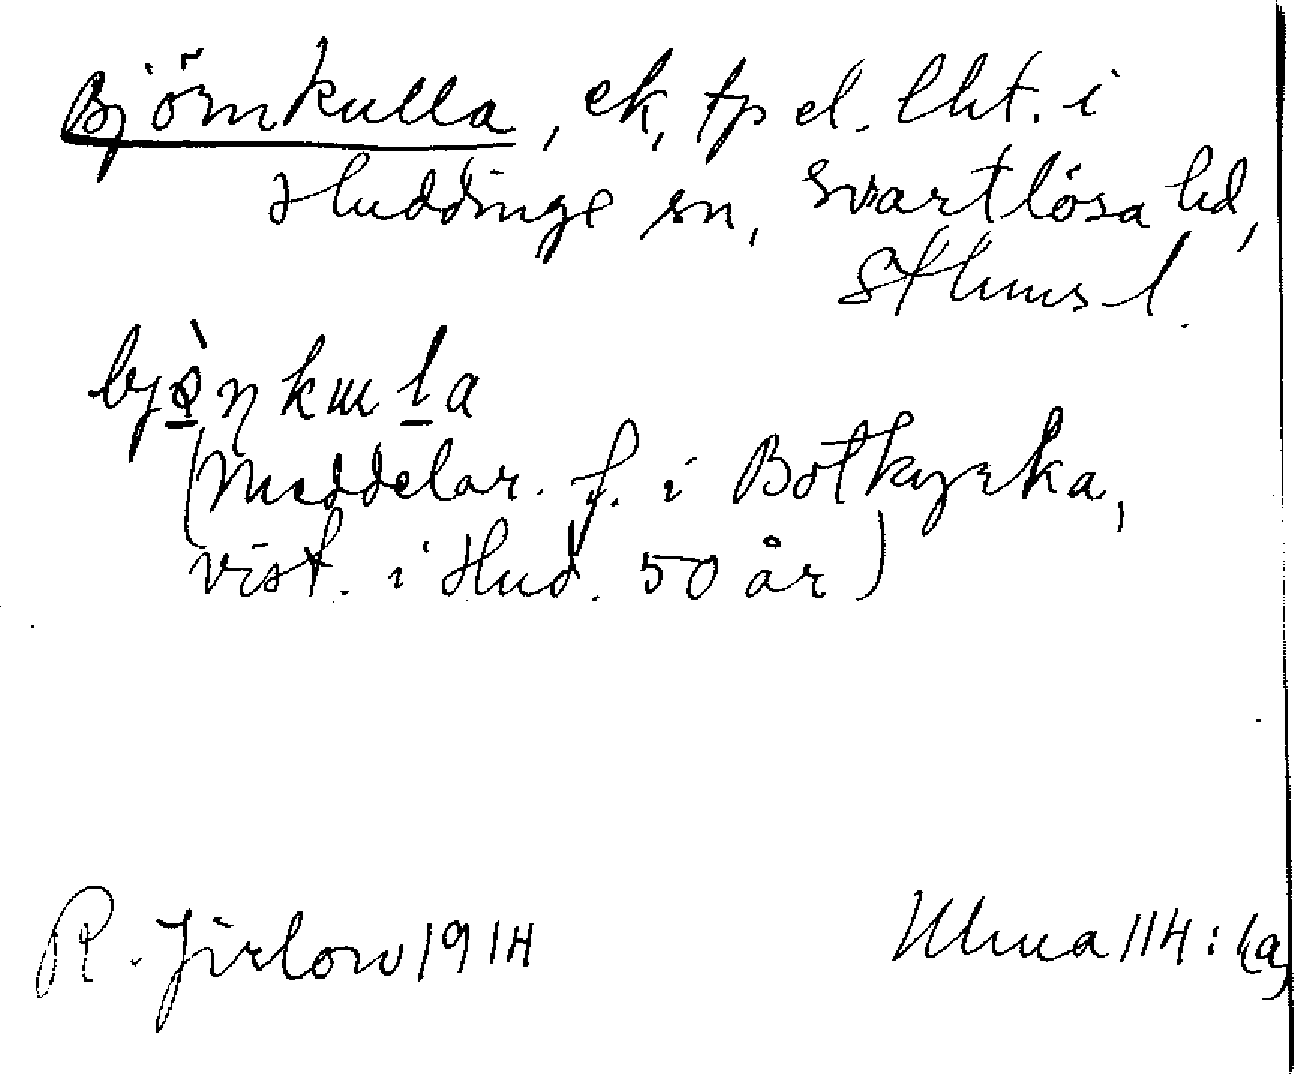 Björnkulla, ek, tp el. lht. i
Huddinge sn, Svartlösa hd,
Sthms l.
(Meddelar. f. i Botkyrka,
vist. i Hud. 50 år)
R. Jirlow 1914 Ulma 114: